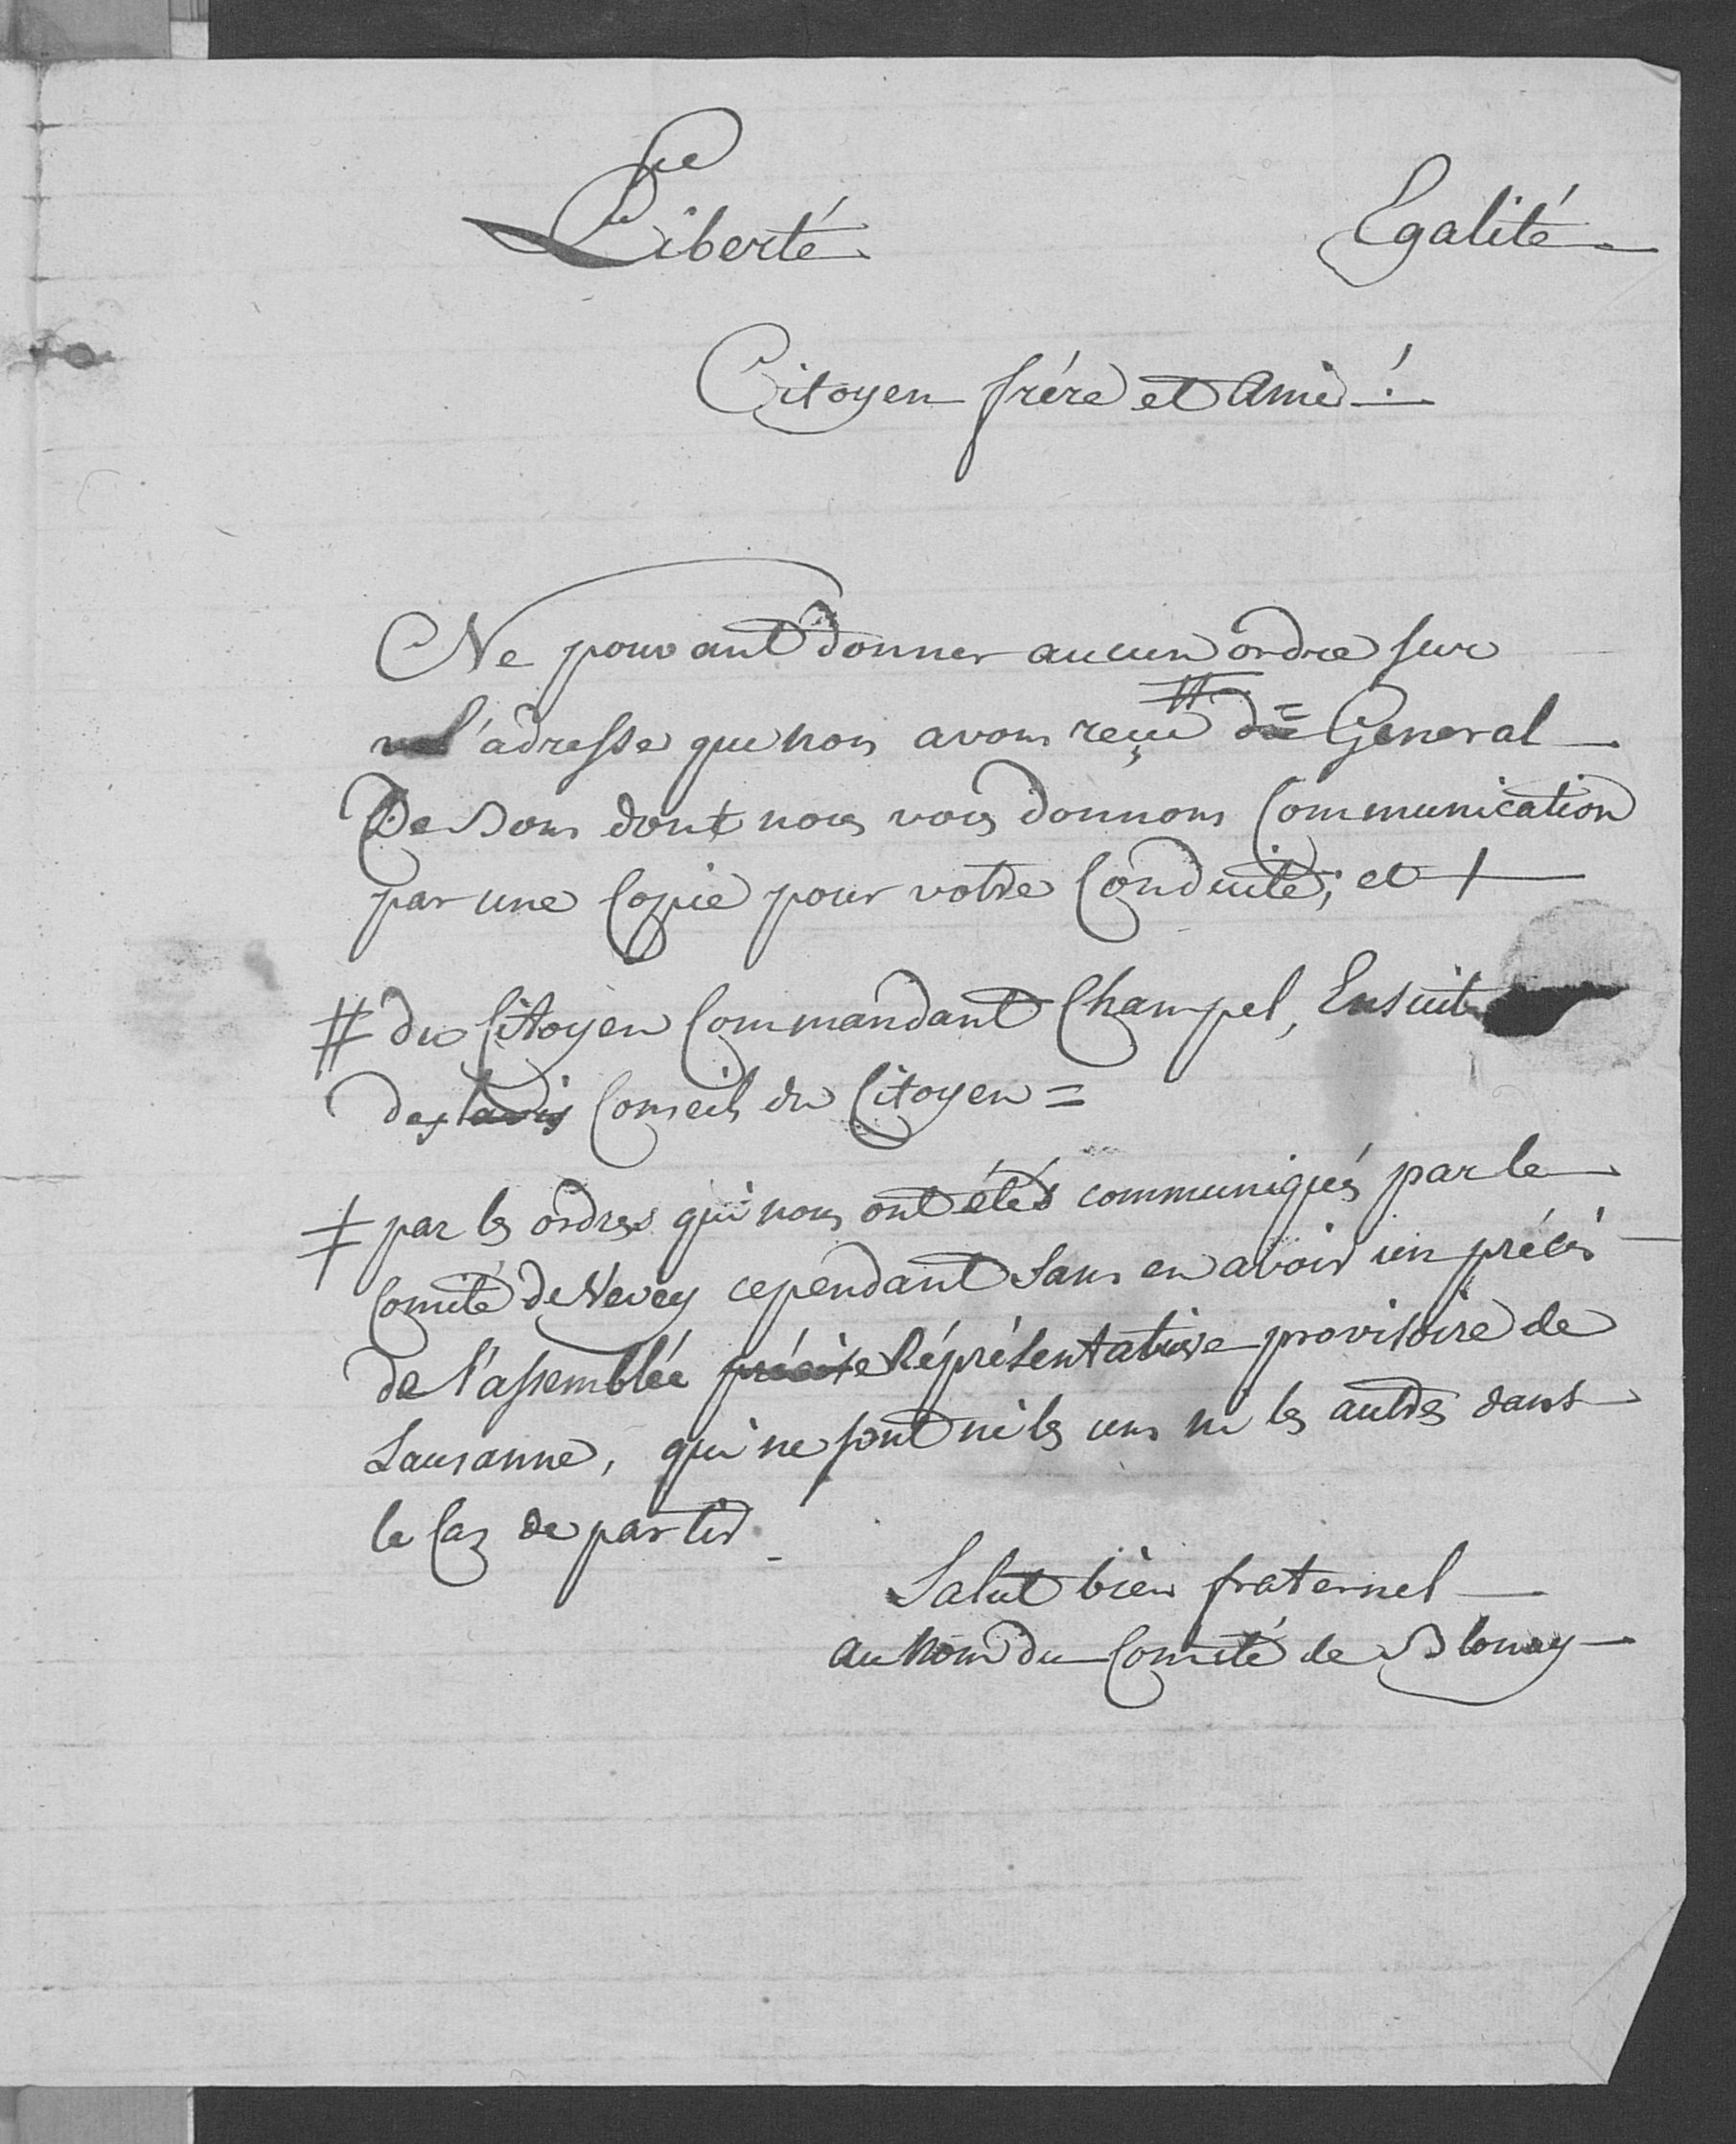 Liberté Egalité
Citoyen frére et Ami !
Ne pouvant donner aucun ordre sur
l'adresse que nous avons reçu # du = General
De Bons dont nous vous donnons Communication
par une Copie pour votre Conduite; et +
# du Citoyen Commandant Champel, Ensuite
des avis Conseils du Citoyen =
‡ par les ordres qui nous ont étés communiqués par le
Comité de Vevey cependant sans en avoir un précis
de l'assemblée précise Réprésentative provisoire de
Lausanne, qui ne sont ni les uns ni les autres dans
le Caz de partir.
Salut bien fraternel
au Nom du Comité de Blonay